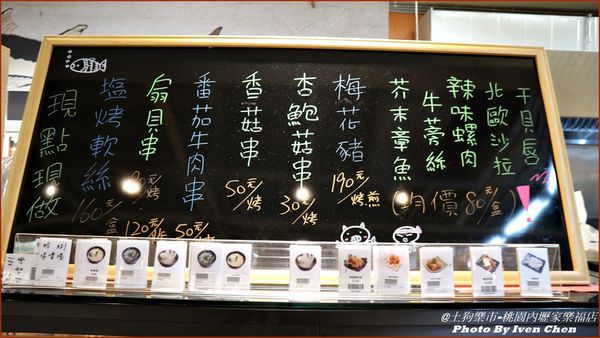 干貝唇
北歐沙拉
辣味螺肉
牛蒡絲
芥末章魚
(明價80元/盒)!
梅花豬
190元/烤煎
杏鮑菇串
30元/烤
香菇串
50元/烤
番茄牛肉串
50元/烤
扇貝串
90元/烤
120元/炸
鹽烤軟絲
160元/盒
現點現做
味噌湯
@土狗樂市-桃園內壢家樂福店
Photo By Iven Chen